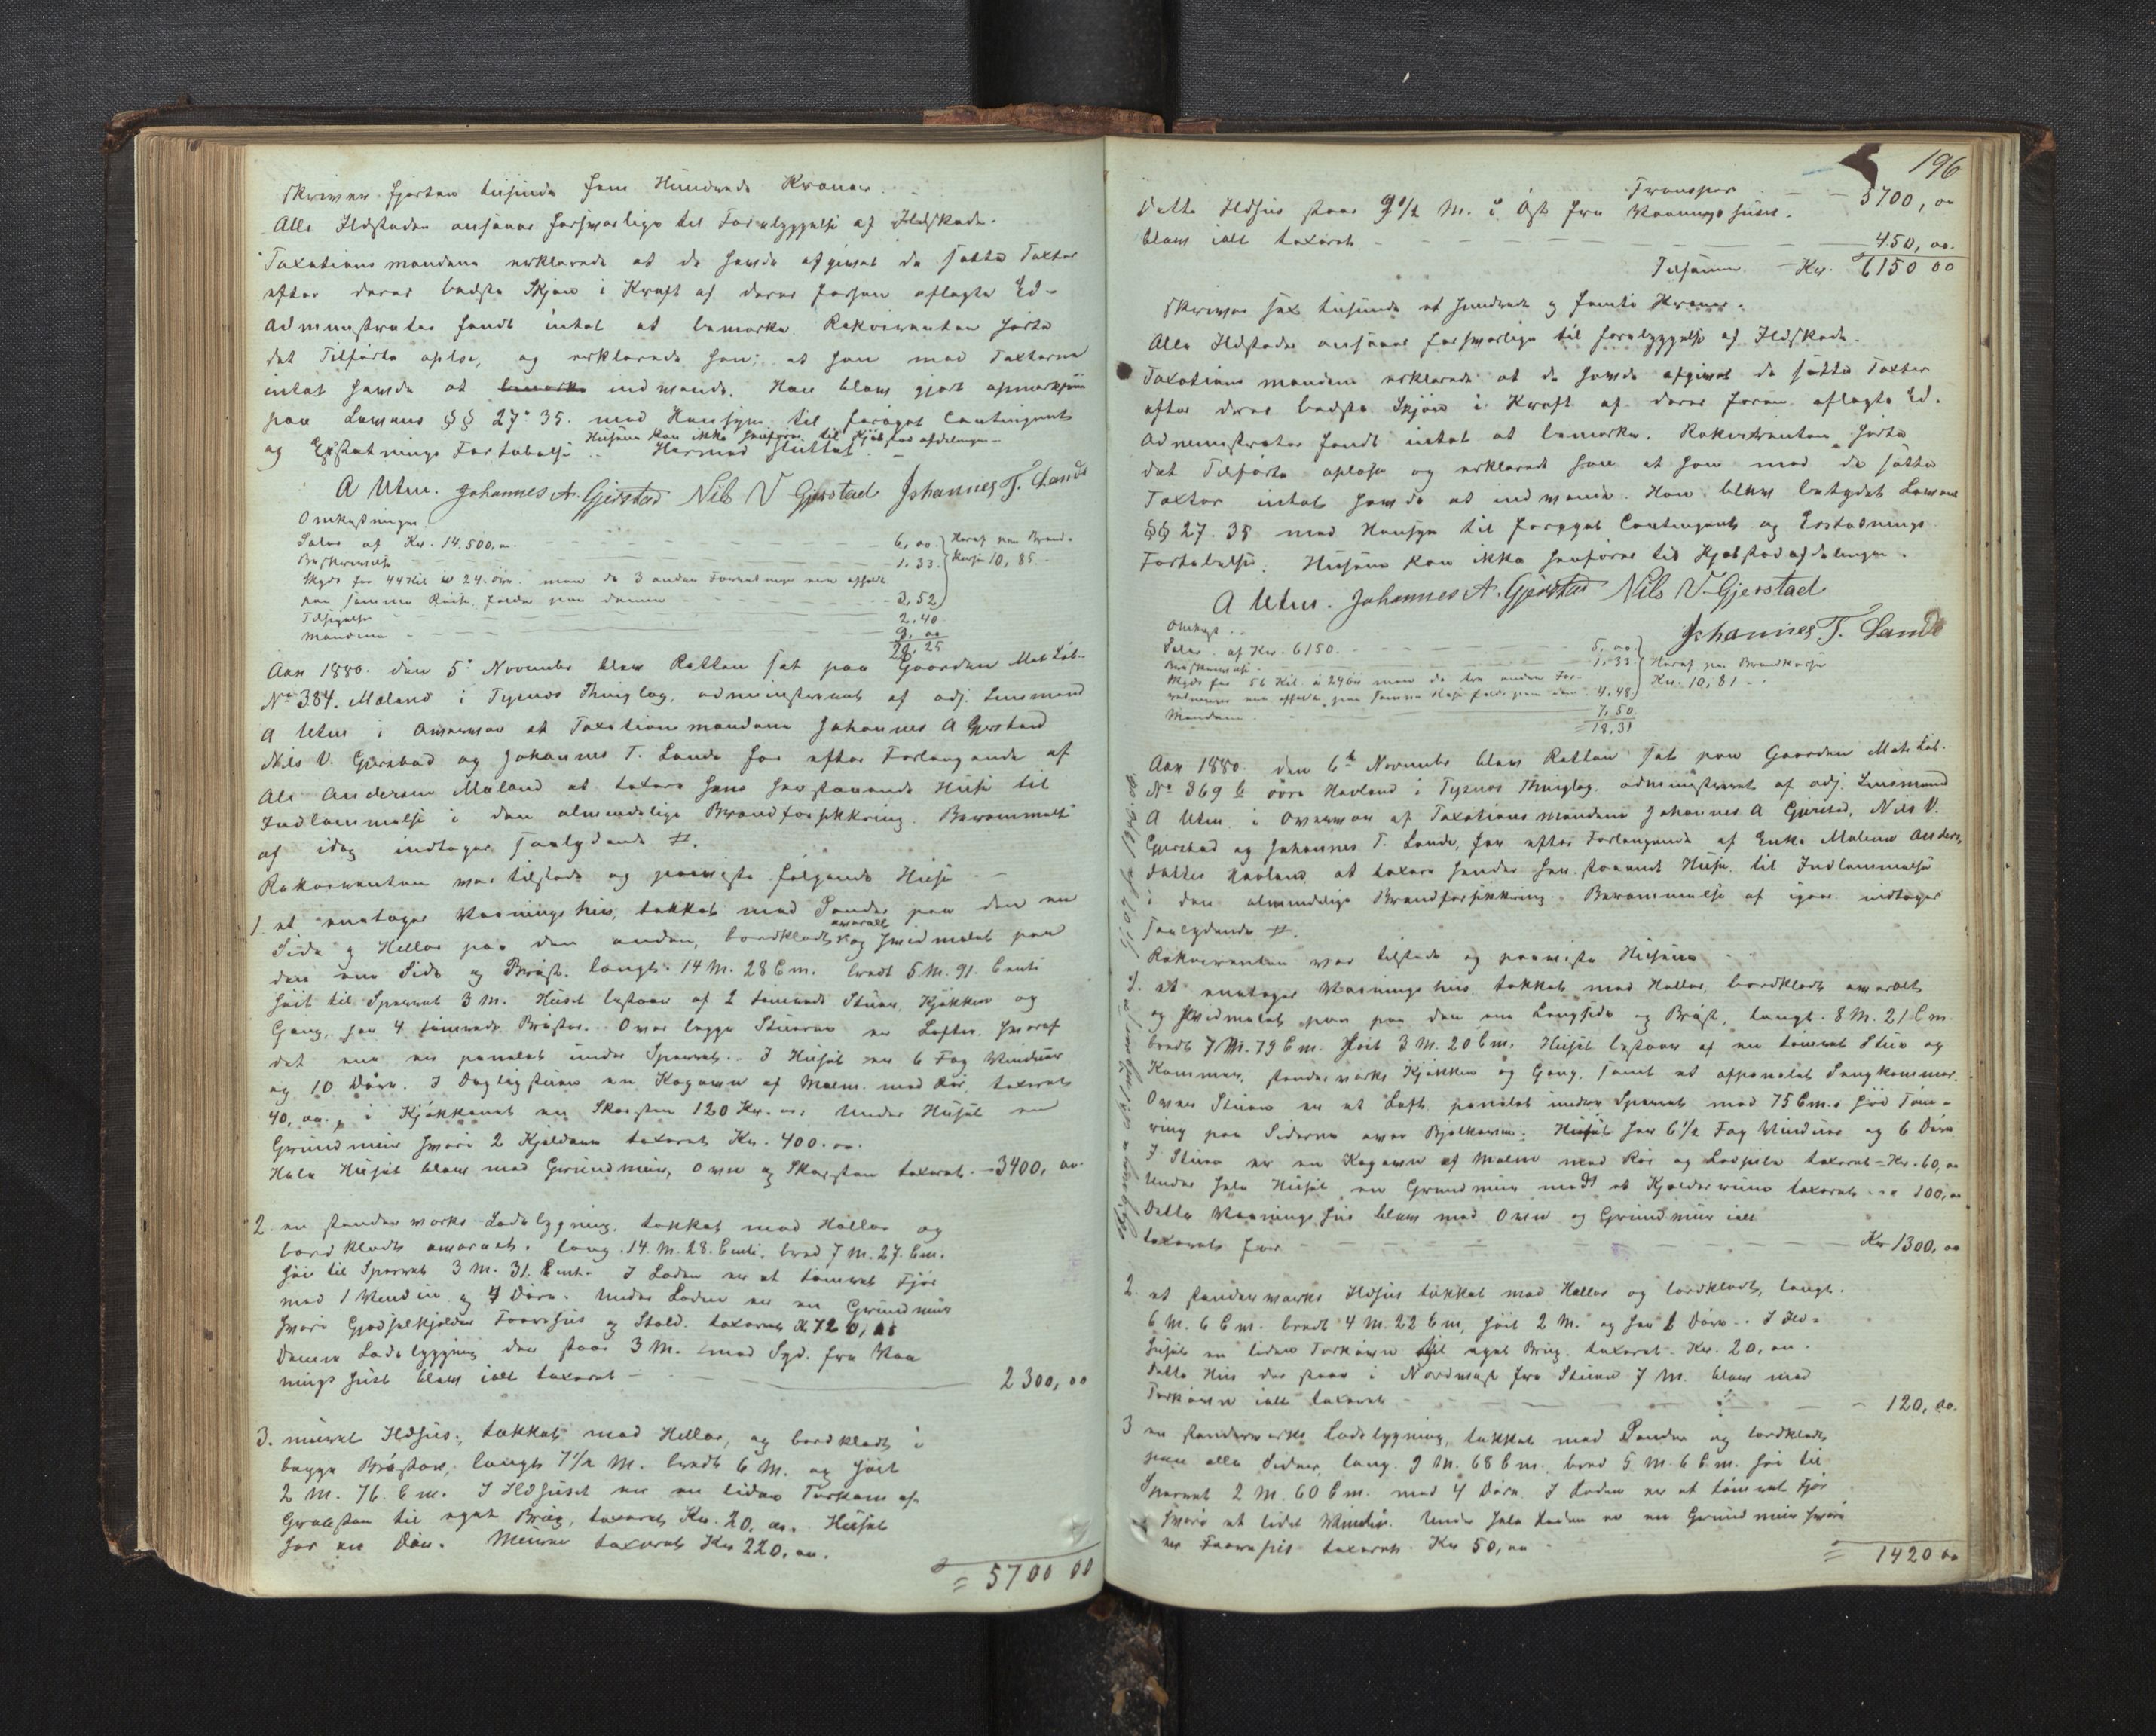 skriver fjorten tusinde fem Hundrede Kroner.
Alle Ildstæder ansaaes forsvarlige til Forebyggelse af Ildskade.
Taxationsmændene erklærede at de havde afgivet de satte Taxter
efter deres bedste Skjøn i Kraft af deres forhen aflagte Ed.
Administrator fandt intet at bemærke. Rekvirenten hørte
det Tilførte oplæse, og erklærede han, at han mod Taxterne
intet havde at indvende. Han blev gjort opmærksom
paa Lovens §§ 27. 35. med Hensyn til forøget Contingent
Husene kan ikke henføres til Kjøbstad afdelingen.
og Erstatnings Fortabelse. Hermed sluttet.
A Utne. Johannes A. Gjerstad Nils V Gjerstad Johannes T. Lande
Omkostninger.
Salær af Kr. 14.500,00 6,00 Heraf paa Brand-
Beskrivelse 1.33. kassen 10,85
Skyds for 44 Kil à 24 øre. men da 3 andre Forretninger ere afholdt
paa samme Reise falder paa denne 3,52
Tilsigelse 2.40
Mændene 9,00
22,25
Aar 1880. den 5te November blev Retten sat paa Gaarden Mat Løb.
No 384. Maland i Tysnes Thinglag, administreret af adj. Lensmand
A Utne i Overvær af Taxationsmændene Johannes A Gjerstad
Nils V. Gjerstad og Johannes T. Lande for efter Forlangende af
Ole Andersen Maland at taxere hans herstaaende Huse til
Indlemmelse i den almindelige Brandforsikkring. Berammelse
af idag indtages saalydende #.
Rekvirenten var tilstede og paaviste følgende Huse
1. et enetages Vaaningshus, tækket med Pander paa den ene
Side og Heller paa den anden, bordklædt overalt og hvidmalet paa
den ene Side og Brøst. langt. 14 M. 28 Cm. bredt 5 M. 91. Centi
høit til Sperret 3 M. Huset bestaar af 2 tømrede Stuer, Kjøkken og
Gang, har 4 tømrede Brøster. Over begge Stuerne er Lofter hvoraf
det ene er panelet under Sperret. I Huset er 6 Fag Vinduer
og 10 Døre. I Dagligstuen en Kogeovn af Malm med Rør, taxeret
40,00, i Kjøkkenet en Skorsten 120 Kr. Under Huset en
Grundmur hvori 2 Kjeldere taxeret Kr. 400.00
Hele Huset blev med Grundmur, Ovn og Skorsten taxeret 3400,00
2. en stenderværks Ladebygning, tækket med Heller og
bordklædt overalt. lang 14. M. 28. Centi. bred 7 M. 27. Cm.
høi til Sperret 3 M. 31. Cent. I Laden er et tømret Fjøs
med 1 Vindue og 4 Døre. Under Laden er en Grundmur
hvori Gjødselkjelder Faarehus og Stald. taxeret K 720,00
Denne Ladebygning der staar 3 M. mod Syd. fra Vaa
ningshuset blev ialt taxeret 2300,00
3. muret Ildhus, tækket med Heller, og bordklædt i
begge Brøster, langt 7 1/2 M. bredt 6 M. og høit
2 M. 76. Cm. I Ildhuset er en liden Tørkeovn af
Graasten til eget Brug, taxeret Kr. 20,00. Huset
har en Dør. Murene taxeret Kr 220,00.
= 5700 00
196
Transport 5700,00
Dette Ildhus staar 9 1/2 M. i Øst fra Vaaningshuset.
blev ialt taxeret 450,00.
Tilsammen Kr. 6150 00
skriver sex tusinde et hundrede og femti Kroner.
Alle Ildstæder ansaaes forsvarlige til forebyggelse af Ildskade.
Taxationsmændene erklærede at de havde afgivet de satte Taxter
efter deres bedste Skjøn i Kraft af deres forhen aflagte Ed.
Administrator fandt intet at bemærke. Rekvirenten hørte
det Tilførte oplæse og erklærede han at han mod de satte
Taxter intet havde at indvende. Han blev betydet Lovens
§§ 27. 35 med Hensyn til forøget Contingent og Erstatnings
Fortabelse. Husene kan ikke henføres til Kjøbstadafdelingen.
A Utne. Johannes A. Gjerstad Nils V. Gjerstad
Johannes T. Lande
Omkost
Salær af Kr. 6150. 5,00
Beskrivelse 1,33. Heraf paa Brandkassen
Skyds for 56 Kil. à 24 øre men da tre andre For- Kr. 10,81
retninger ere afholdt paa samme Reise falder paa den 4,48
Mændene 7,50
= 18,31
Aar 1880. den 6te November blev Retten sat paa Gaarden Mat Løb.
No 369 b øvre Havland i Tysnes Thinglag, administreret af adj. Lensmand
A Utne i Overvær af Taxationsmændene Johannes A Gjerstad, Nils V.
Gjerstad og Johannes T. Lande, for efter Forlangende af Enke Malene Anders-
datter Havland at taxere hendes herstaaende Huse til Indlemmelse
i den almindelige Brandforsikkring. Berammelse af igaar indtages
saalydende #.
Rekvirenten var tilstede og paaviste Husene
1. et enetages Vaaningshus tækket med Heller, bordklædt overalt
og hvidmalet paa den ene Langside og Brøst, langt. 8 M. 21 Cm.
bredt 7 M. 79 Cm. Høit 3 M. 20 Cm. Huset bestaar af en tømret Stue og
Kammer, stenderværks Kjøkken og Gang, samt et afpanelet Sengkammer.
Over Stuen er et Loft panelet under Sperret med 75 Cm. høi Tøm-
ring paa Siderne over Bjelkerne. Huset har 6 1/2 Fag Vinduer og 6 Døre
I Stuen er en Kogeovn af Malm med Rør og taxeret Kr. 60,00
Under hele Huset en Grundmur med et Kjelderrum taxeret 100,00
Dette Vaaningshus blev med Ovn og Grundmur ialt
taxeret for Kr 1300,00
2. et stenderværks Ildhus tækket med Heller og bordklædt, langt.
6 M. 6 Cm. bredt 4 M. 22 Cm, høit 2 M. og har 1 Dør. I Ild-
huset en liden Tørkeovn til eget Brug. taxeret Kr. 20,00.
Dette Hus der staar i Nordvest fra Stuen 7 M. blev med
Tørkeovn ialt taxeret 120,00.
3 en stenderværks Ladebygning, tækket med Pander og bordklædt
paa alle Sider, lang. 9 M. 68 Cm. bred 5 M. 6 Cm. høi til
Sperret 2 M. 60 Cm. med 4 Døre. I Laden er et tømret Fjøs
hvori et lidet Vindue. Under hele Laden er en Grundmur hvori
er Faarehus taxeret. Kr 50,00
= 1420 00